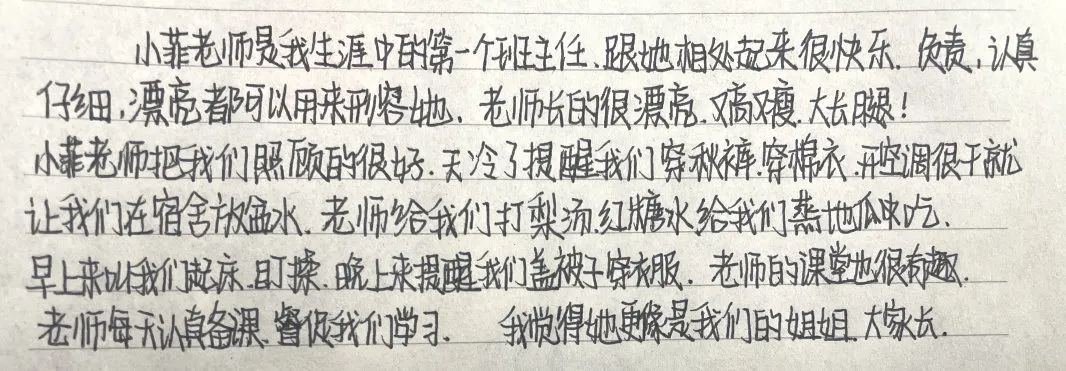 小菲老师是我生涯中的第一个班主任、跟她相处起来很快乐. 负责, 认真
仔细, 漂亮都可以用来形容她. 老师长的很漂亮. 又高又瘦. 大长腿!
小菲老师把我们照顾的很好. 天冷了提醒我们穿秋裤. 穿棉衣. 开空调很干就
让我们在宿舍放盆水. 老师给我们打梨汤. 红糖水. 给我们蒸地瓜吃.
早上来叫我们起床. 盯操. 晚上来提醒我们盖被子穿衣服. 老师的课堂也很有趣.
老师每天认真备课. 督促我们学习. 我觉得她更像是我们的姐姐. 大家长.